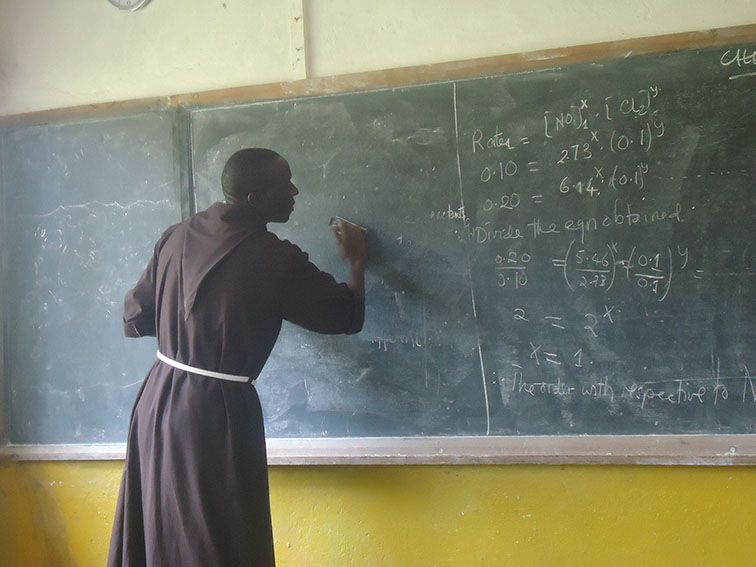 Rates = [NO]^x . [Cl2]^y
0.10 = 2.73^x . (0.1)^y
0.20 = 6.14^x . (0.1)^y
Divide the eqn obtained.
0.20/0.10 = (5.46/2.73)^x (0.1/0.1)^y =
2 = 2^x.
x = 1.
∴ The order with respective to N